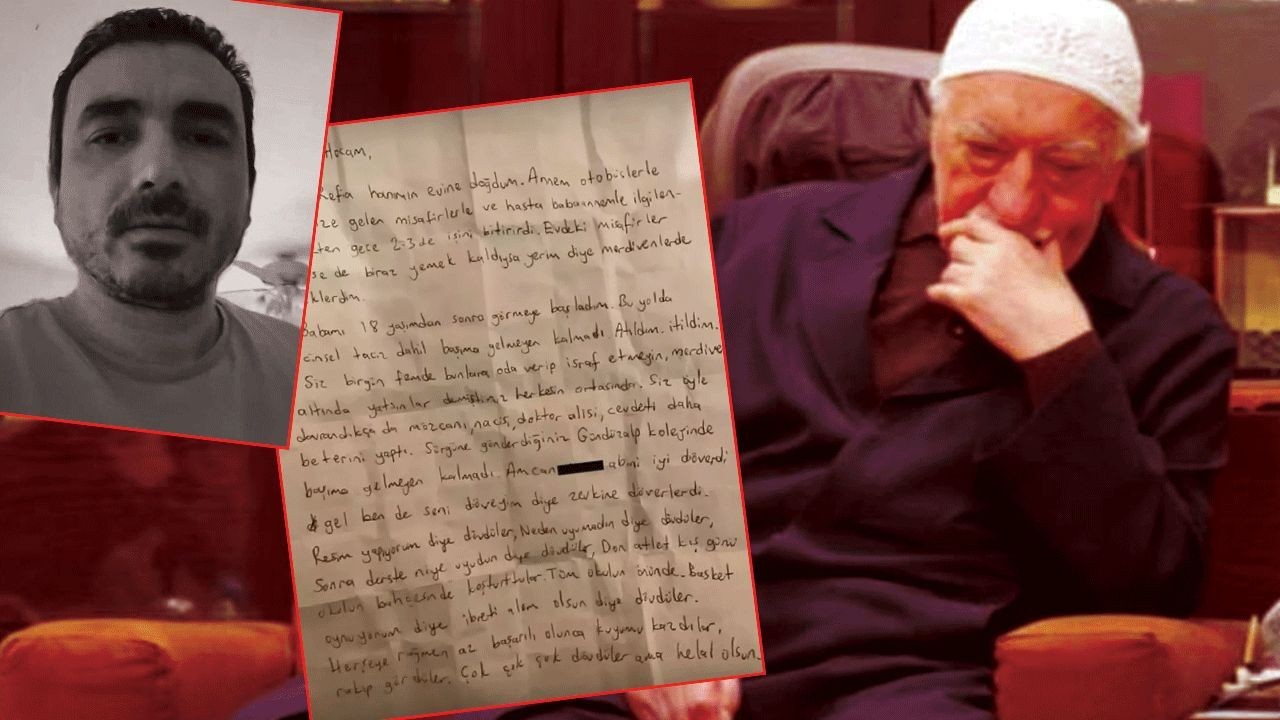 Hocam,
Refia hanımın evine doğdum. Annem otobüslerle
ze gelen misafirlerle ve hasta babaannemle ilgilen-
ten gece 2-3 de işini bitirirdi. Evdeki misafirler
se de biraz yemek kaldıysa yerim diye merdivenlerde
klerdim.
Babamı 18 yaşımdan sonra görmeye başladım. Bu yolda
cinsel taciz dahil başıma gelmeyen kalmadı Atıldım. itildim.
Siz birgün femde bunlara oda verip israf etmeyin, merdive
altında yatsınlar demiştiniz herkesin ortasında. Siz öyle
davrandıkça da mözcanı, nacisi, doktor alisi, cevdeti daha
beterini yaptı. Sürgüne gönderdiğiniz Gündüzalp kolejinde
başıma gelmeyen kalmadı. Amcan abini iyi döverdi
gel ben de seni döveyim diye zevkine döverlerdi.
Resim yapıyorum diye dövdüler, Neden uyumadın diye dövdüler,
Sonra derste niye uyudun diye dövdüler, Don atlet kış günü
okulun bahçesinde koşturttular. Tüm okulun önünde. Basket
oynuyorum diye ibreti alem olsun diye dövdüler.
Herşeye rağmen az başarılı olunca kuyumu kazdılar,
rakip gördüler. Çok çok çok dövdüler ama helal olsun.